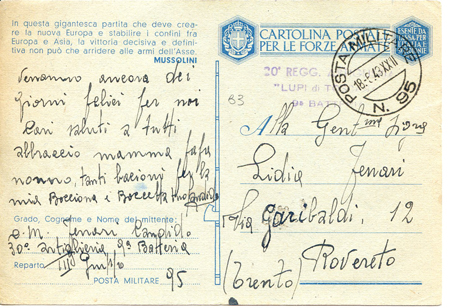 In questa gigantesca partita che deve creare
la nuova Europa e stabilire i confini fra
Europa e Asia, la vittoria decisiva e definitiva
non può che arridere alle armi dell'Asse.
MUSSOLINI
Verranno ancora dei
giorni felici per noi
Cari saluti a tutti
abbraccio mamma papà
nonno, tanti bacioni per la
mia Bocciona e Boccetta
Grado, Cognome e Nome del mittente:
Jenari Candido
30° Artiglieria 9ª Batteria
Reparto III Gruppo
POSTA MILITARE 95
CARTOLINA POSTALE
PER LE FORZE ARMATE
ESENTE DA TASSA PER LE
POSTA MILITARE
18.5.43 XXI
N. 95
30° REGG.
"LUPI di
9ª BATT
83
Alla Gent.ma Sig.ra
Lidia Jenari
Via Garibaldi, 12
Rovereto
(Trento)